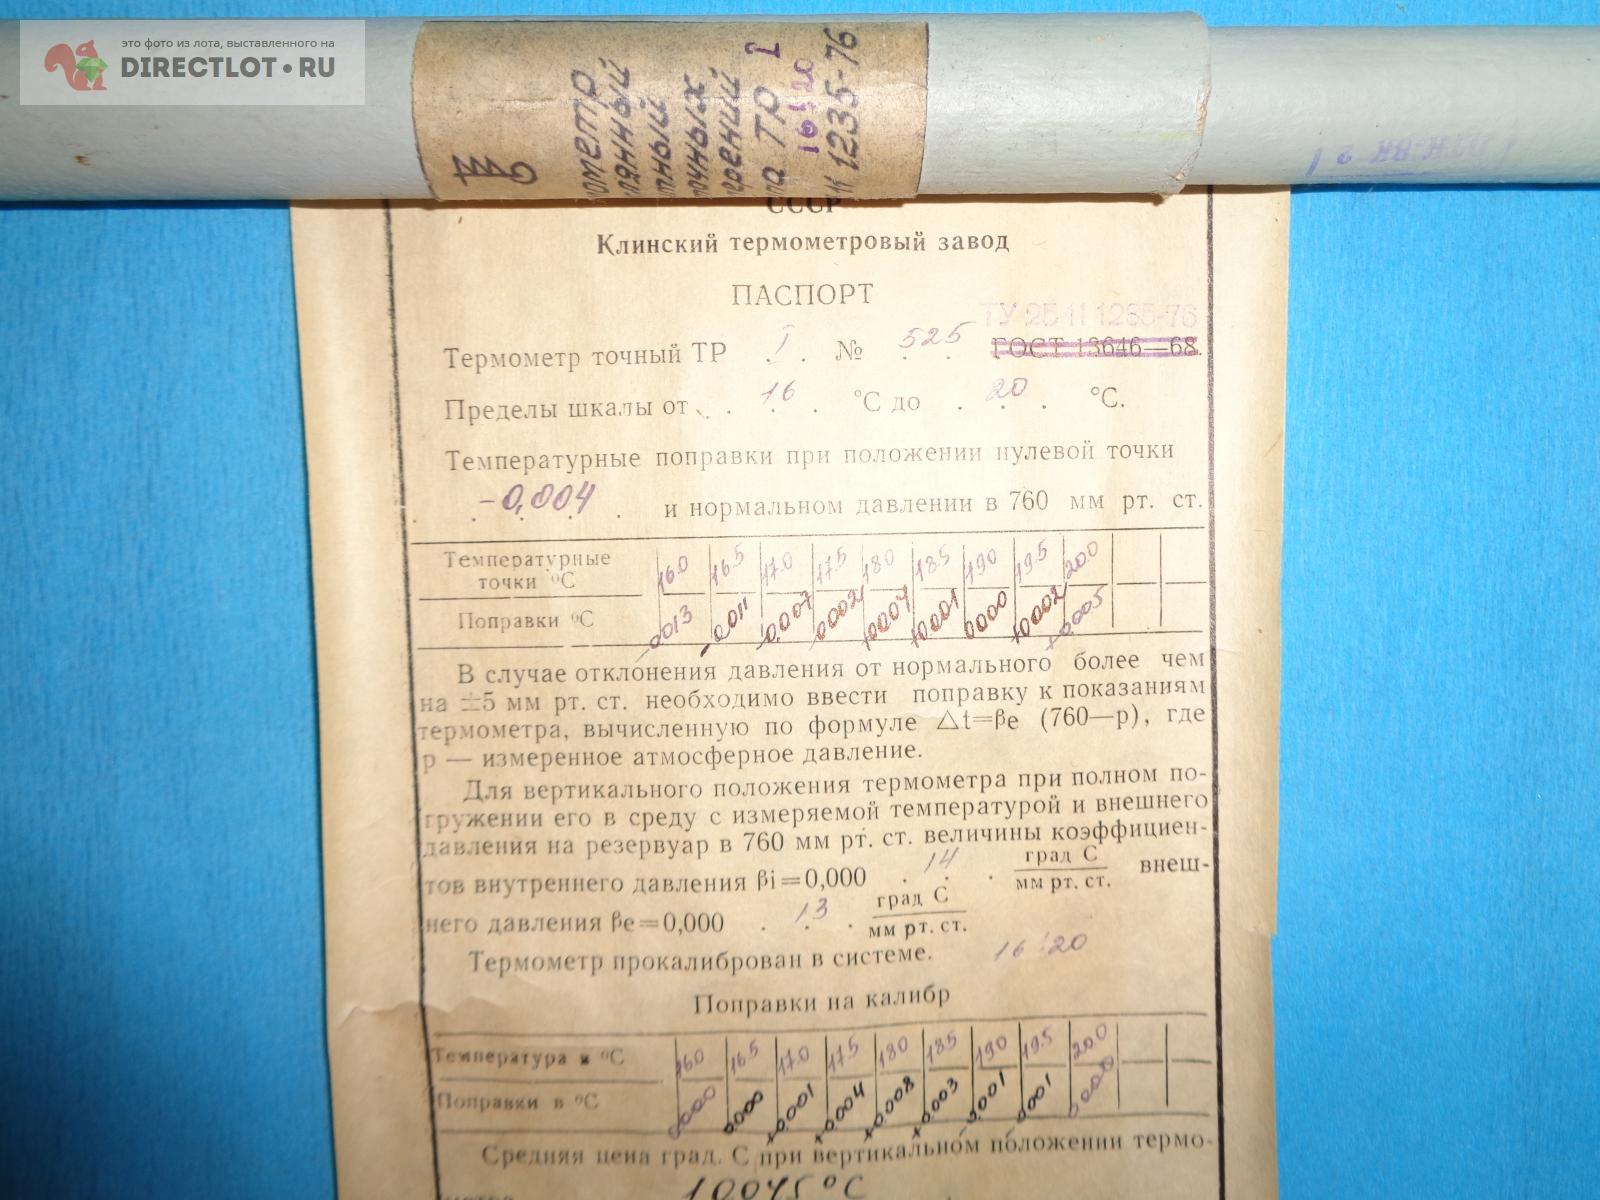 это фото из лота, выставленного на
DIRECTLOT.RU
ТР I
16÷20
1235-76
СССР
Клинский термометровый завод
ПАСПОРТ
ТУ 25 11 1235-76
Термометр точный ТР I . № 525 ГОСТ 13646—68.
Пределы шкалы от 16 °С до 20 °С.
Температурные поправки при положении нулевой точки
-0,004 и нормальном давлении в 760 мм рт. ст.
Температурные точки °С 16.0 16.5 17.0 17.5 18.0 18.5 19.0 19.5 20.0
Поправки °С -0013 -0011 -0,007 0002 0001 0000 +0002 +0.005
В случае отклонения давления от нормального более чем
на ±5 мм рт. ст. необходимо ввести поправку к показаниям
термометра, вычисленную по формуле △t=βe (760—p), где
p — измеренное атмосферное давление.
Для вертикального положения термометра при полном по-
гружении его в среду с измеряемой температурой и внешнего
давления на резервуар в 760 мм рт. ст. величины коэффициен-
тов внутреннего давления βi=0,000 14 град С / мм рт. ст. внеш-
него давления βe=0,000 13 град С / мм рт. ст.
Термометр прокалиброван в системе. 16÷20
Поправки на калибр
Температура в °С 16.0 16.5 17.0 17.5 18.0 18.5 19.0 19.5 20.0
Поправки в °С 0000 0.000 +0.001 +0.004 +0.008 +0.003 0.001 0001 0000
Средняя цена град. С при вертикальном положении термо-
10045°С